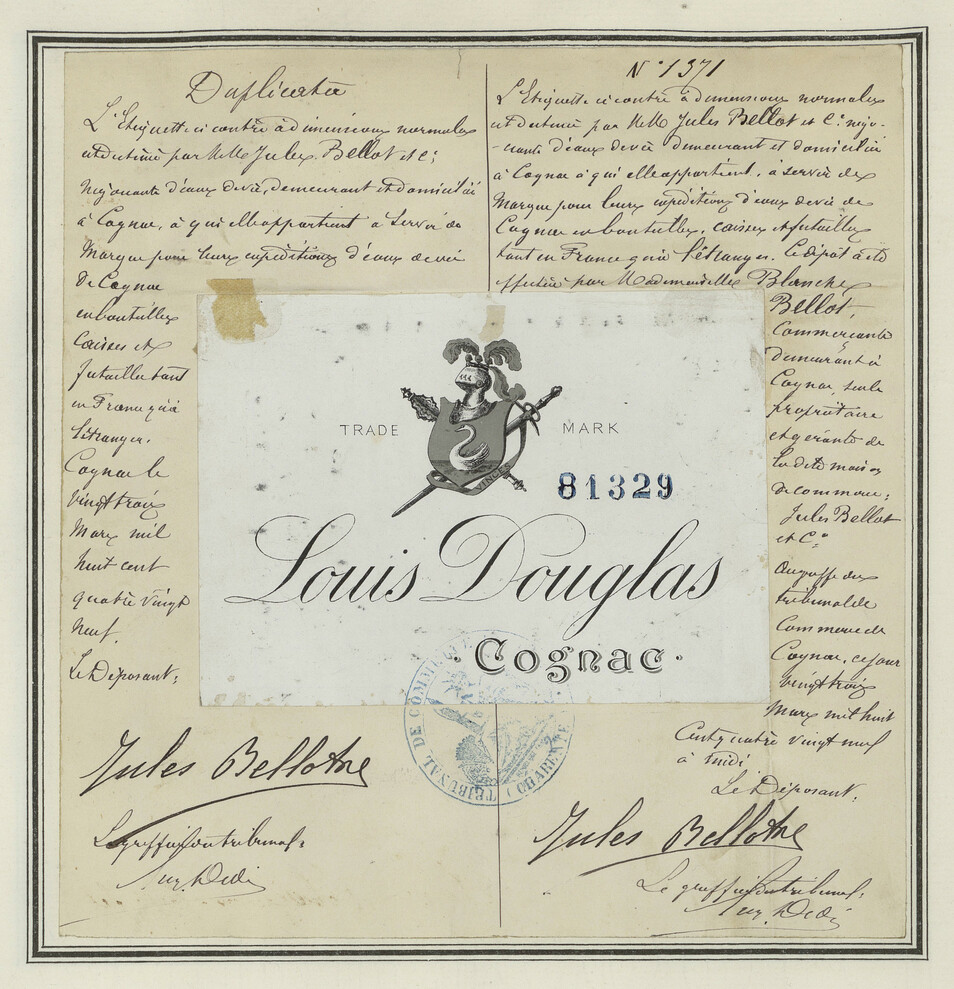 Duplicata
L'Etiquette ci contre à dimensions normales
est destinée par MM Jules Bellot et Cie
Négociants d'eaux de vie, demeurant et domiciliés
à Cognac, à qui elle appartient à servir de
Marque pour leurs expéditions d'eaux de vie
De Cognac
en bouteilles
Caisses et
futailles tant
en France qu'à
l'étranger.
Cognac le
Vingt trois
Mars mil
huit cent
quatre Vingt
Neuf.
Le Déposant:
Jules Bellot & Cie
Le greffier du tribunal:
N° 1371
L'Etiquette ci contre à dimensions normales
est destinée par MM Jules Bellot et Cie négo-
-ciants d'eaux de vie demeurant et domiciliés
à Cognac à qui elle appartient, à servir de
Marque pour leurs expéditions d'eaux de vie de
Cognac en bouteilles, caisses et futailles
tant en France qu'à l'étranger. Le dépôt a été
effectué par Mademoiselle Blanche
Bellot,
Commerçante
demeurant à
Cognac, seule
propriétaire
et gérante de
la dite maison
de commerce:
Jules Bellot
et Cie
Au greffe du
tribunal de
Commerce de
Cognac, ce jour
Vingt trois
Mars mil huit
Cent quatre Vingt neuf
à midi
Le Déposant:
Jules Bellot & Cie
Le greffier du tribunal:
TRADE MARK
VINCES
81329
Louis Douglas
Cognac
TRIBUNAL DE COMMERCE
(CHARENTE)